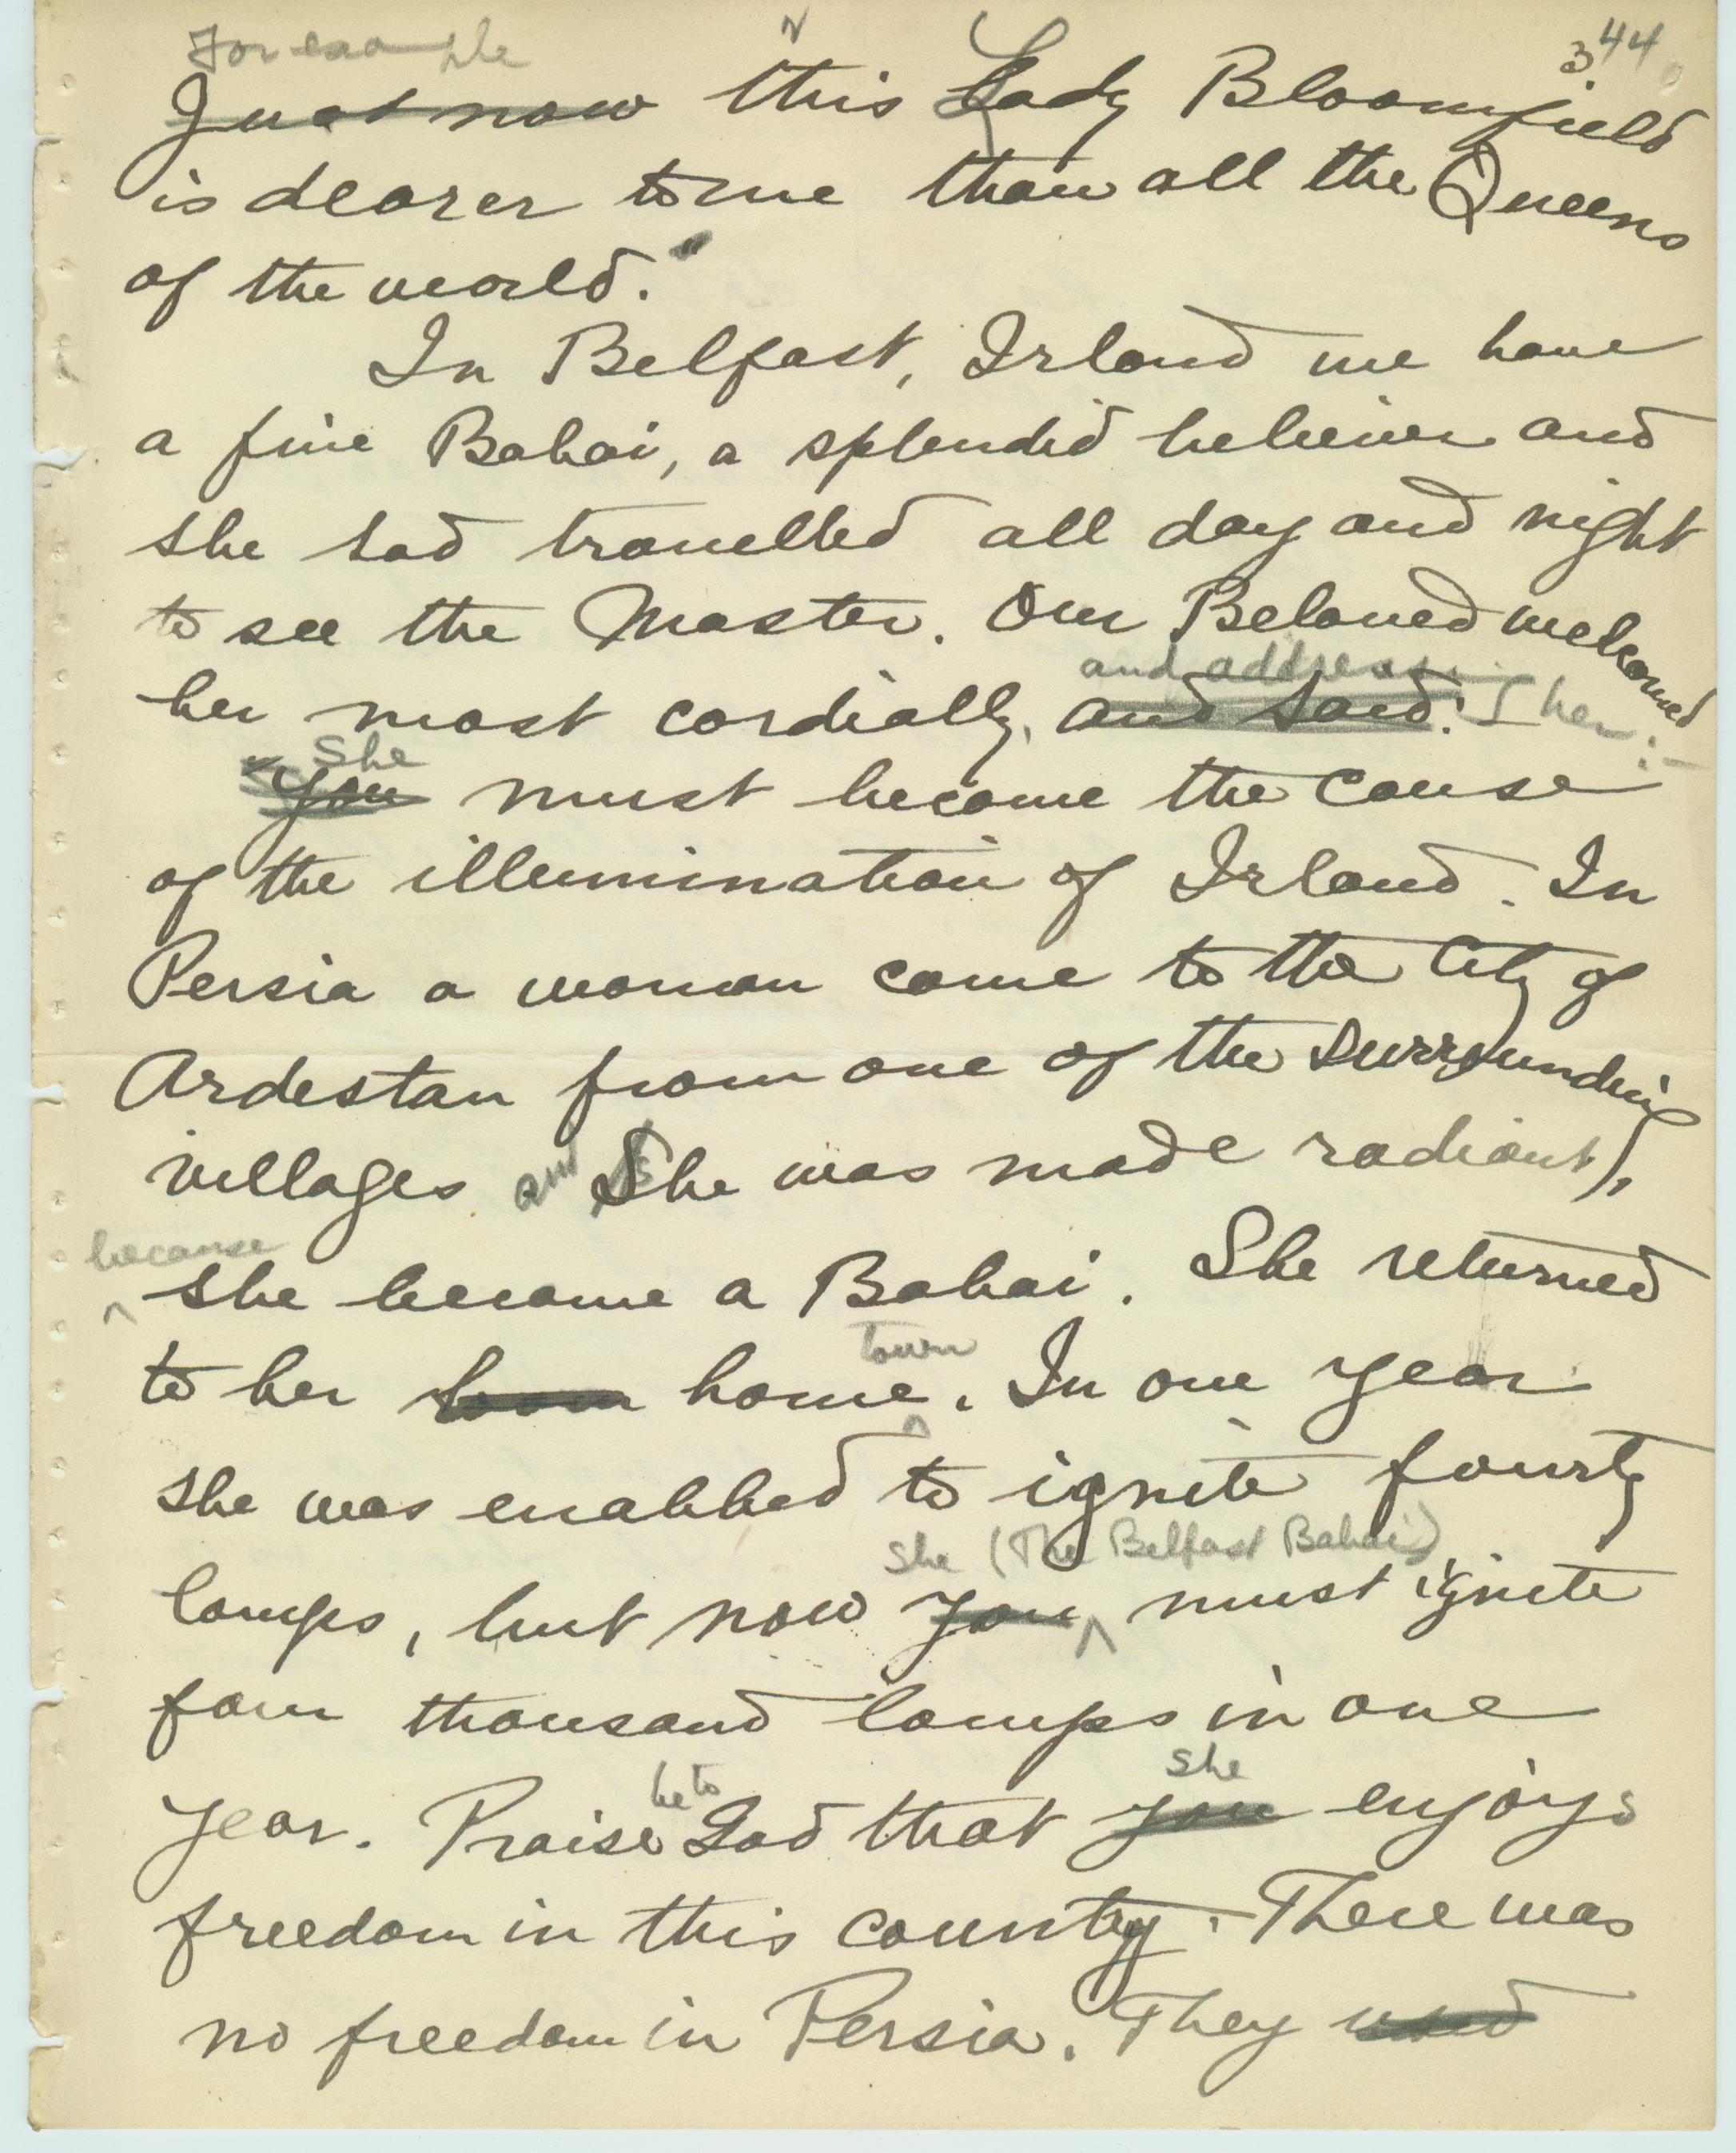 344
For example
Just now this Lady Bloomfield
is dearer to me than all the Queens
of the world."
In Belfast, Irland we have
a fine Bahai, a splendid believer and
she had travelled all day and night
to see the Master. Our Beloved welcomed
and addressing
her most cordially, and said: her:-
She
"you must become the cause
of the illumination of Irland. In
Persia a woman came to the City of
Ardestan from one of the surrounding
villages and She was made radiant),
because
she became a Bahai. She returned
town
to her home. In one year
she was enabbed to ignite fourty
She (The Belfast Bahai)
lamps, but now you must ignite
four thousand lamps in one
be to she
year. Praise God that you enjoys
freedom in this country. There was
no freedom in Persia. They used